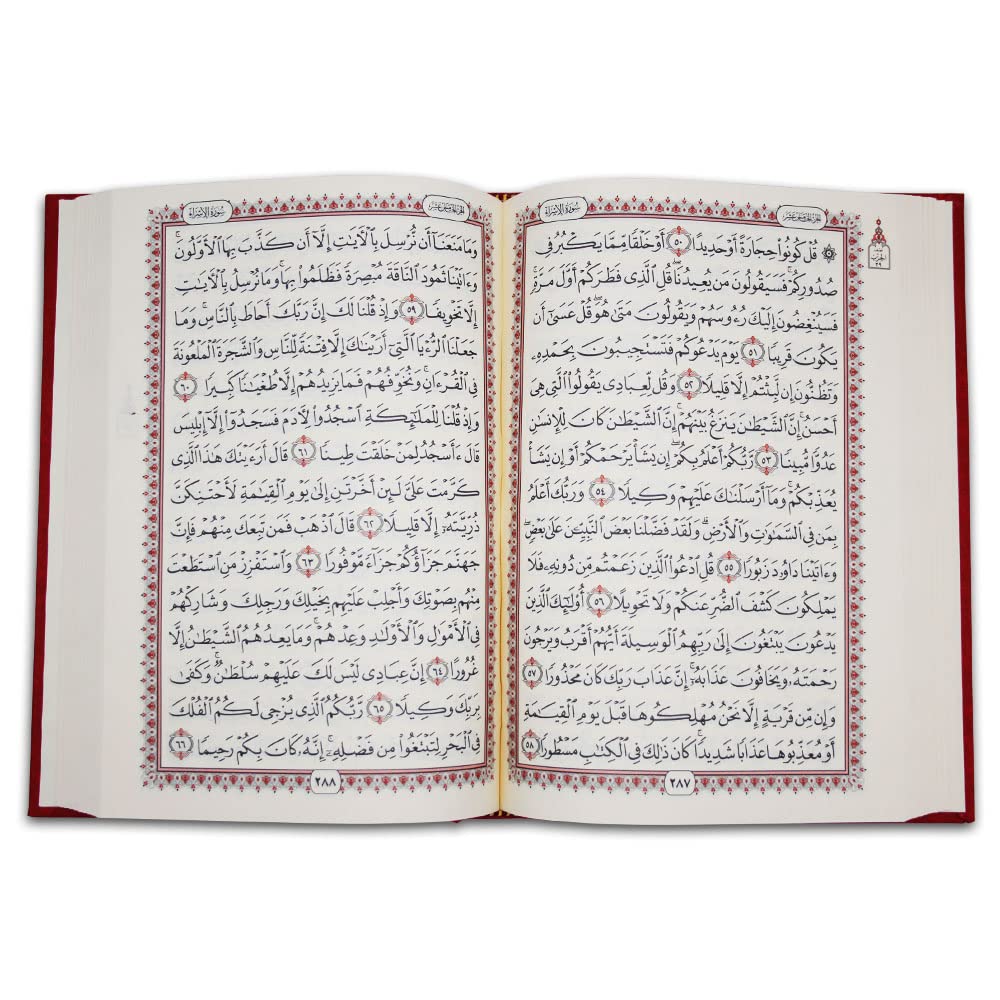 الجزء الخامس عشر سُورَةُ الإِسْرَاءِ
نصف
الحزب
٢٩
۞ قُلْ كُونُوا۟ حِجَارَةً أَوْ حَدِيدًا ٥٠ أَوْ خَلْقًا مِّمَّا يَكْبُرُ فِى
صُدُورِكُمْ ۚ فَسَيَقُولُونَ مَن يُعِيدُنَا ۖ قُلِ ٱلَّذِى فَطَرَكُمْ أَوَّلَ مَرَّةٍ ۚ
فَسَيُنْغِضُونَ إِلَيْكَ رُءُوسَهُمْ وَيَقُولُونَ مَتَىٰ هُوَ ۖ قُلْ عَسَىٰٓ أَن
يَكُونَ قَرِيبًا ٥١ يَوْمَ يَدْعُوكُمْ فَتَسْتَجِيبُونَ بِحَمْدِهِۦ
وَتَظُنُّونَ إِن لَّبِثْتُمْ إِلَّا قَلِيلًا ٥٢ وَقُل لِّعِبَادِى يَقُولُوا۟ ٱلَّتِى هِىَ
أَحْسَنُ ۚ إِنَّ ٱلشَّيْطَٰنَ يَنزَغُ بَيْنَهُمْ ۚ إِنَّ ٱلشَّيْطَٰنَ كَانَ لِلْإِنسَٰنِ
عَدُوًّا مُّبِينًا ٥٣ رَّبُّكُمْ أَعْلَمُ بِكُمْ ۖ إِن يَشَأْ يَرْحَمْكُمْ أَوْ إِن يَشَأْ
يُعَذِّبْكُمْ ۚ وَمَآ أَرْسَلْنَٰكَ عَلَيْهِمْ وَكِيلًا ٥٤ وَرَبُّكَ أَعْلَمُ
بِمَن فِى ٱلسَّمَٰوَٰتِ وَٱلْأَرْضِ ۗ وَلَقَدْ فَضَّلْنَا بَعْضَ ٱلنَّبِيِّـۧنَ عَلَىٰ بَعْضٍ ۖ
وَءَاتَيْنَا دَاوُۥدَ زَبُورًا ٥٥ قُلِ ٱدْعُوا۟ ٱلَّذِينَ زَعَمْتُم مِّن دُونِهِۦ فَلَا
يَمْلِكُونَ كَشْفَ ٱلضُّرِّ عَنكُمْ وَلَا تَحْوِيلًا ٥٦ أُو۟لَٰٓئِكَ ٱلَّذِينَ
يَدْعُونَ يَبْتَغُونَ إِلَىٰ رَبِّهِمُ ٱلْوَسِيلَةَ أَيُّهُمْ أَقْرَبُ وَيَرْجُونَ
رَحْمَتَهُۥ وَيَخَافُونَ عَذَابَهُۥٓ ۚ إِنَّ عَذَابَ رَبِّكَ كَانَ مَحْذُورًا ٥٧
وَإِن مِّن قَرْيَةٍ إِلَّا نَحْنُ مُهْلِكُوهَا قَبْلَ يَوْمِ ٱلْقِيَٰمَةِ
أَوْ مُعَذِّبُوهَا عَذَابًا شَدِيدًا ۚ كَانَ ذَٰلِكَ فِى ٱلْكِتَٰبِ مَسْطُورًا ٥٨
٢٨٧
الجزء الخامس عشر سُورَةُ الإِسْرَاءِ
وَمَا مَنَعَنَآ أَن نُّرْسِلَ بِٱلْءَايَٰتِ إِلَّآ أَن كَذَّبَ بِهَا ٱلْأَوَّلُونَ ۚ
وَءَاتَيْنَا ثَمُودَ ٱلنَّاقَةَ مُبْصِرَةً فَظَلَمُوا۟ بِهَا ۚ وَمَا نُرْسِلُ بِٱلْءَايَٰتِ
إِلَّا تَخْوِيفًا ٥٩ وَإِذْ قُلْنَا لَكَ إِنَّ رَبَّكَ أَحَاطَ بِٱلنَّاسِ ۚ وَمَا
جَعَلْنَا ٱلرُّءْيَا ٱلَّتِىٓ أَرَيْنَٰكَ إِلَّا فِتْنَةً لِّلنَّاسِ وَٱلشَّجَرَةَ ٱلْمَلْعُونَةَ
فِى ٱلْقُرْءَانِ ۚ وَنُخَوِّفُهُمْ فَمَا يَزِيدُهُمْ إِلَّا طُغْيَٰنًا كَبِيرًا ٦٠
وَإِذْ قُلْنَا لِلْمَلَٰٓئِكَةِ ٱسْجُدُوا۟ لِءَادَمَ فَسَجَدُوٓا۟ إِلَّآ إِبْلِيسَ
قَالَ ءَأَسْجُدُ لِمَنْ خَلَقْتَ طِينًا ٦١ قَالَ أَرَءَيْتَكَ هَٰذَا ٱلَّذِى
كَرَّمْتَ عَلَىَّ لَئِنْ أَخَّرْتَنِ إِلَىٰ يَوْمِ ٱلْقِيَٰمَةِ لَأَحْتَنِكَنَّ
ذُرِّيَّتَهُۥٓ إِلَّا قَلِيلًا ٦٢ قَالَ ٱذْهَبْ فَمَن تَبِعَكَ مِنْهُمْ فَإِنَّ
جَهَنَّمَ جَزَآؤُكُمْ جَزَآءً مَّوْفُورًا ٦٣ وَٱسْتَفْزِزْ مَنِ ٱسْتَطَعْتَ
مِنْهُم بِصَوْتِكَ وَأَجْلِبْ عَلَيْهِم بِخَيْلِكَ وَرَجِلِكَ وَشَارِكْهُمْ
فِى ٱلْأَمْوَٰلِ وَٱلْأَوْلَٰدِ وَعِدْهُمْ ۚ وَمَا يَعِدُهُمُ ٱلشَّيْطَٰنُ إِلَّا
غُرُورًا ٦٤ إِنَّ عِبَادِى لَيْسَ لَكَ عَلَيْهِمْ سُلْطَٰنٌ ۚ وَكَفَىٰ
بِرَبِّكَ وَكِيلًا ٦٥ رَّبُّكُمُ ٱلَّذِى يُزْجِى لَكُمُ ٱلْفُلْكَ
فِى ٱلْبَحْرِ لِتَبْتَغُوا۟ مِن فَضْلِهِۦٓ ۚ إِنَّهُۥ كَانَ بِكُمْ رَحِيمًا ٦٦
٢٨٨